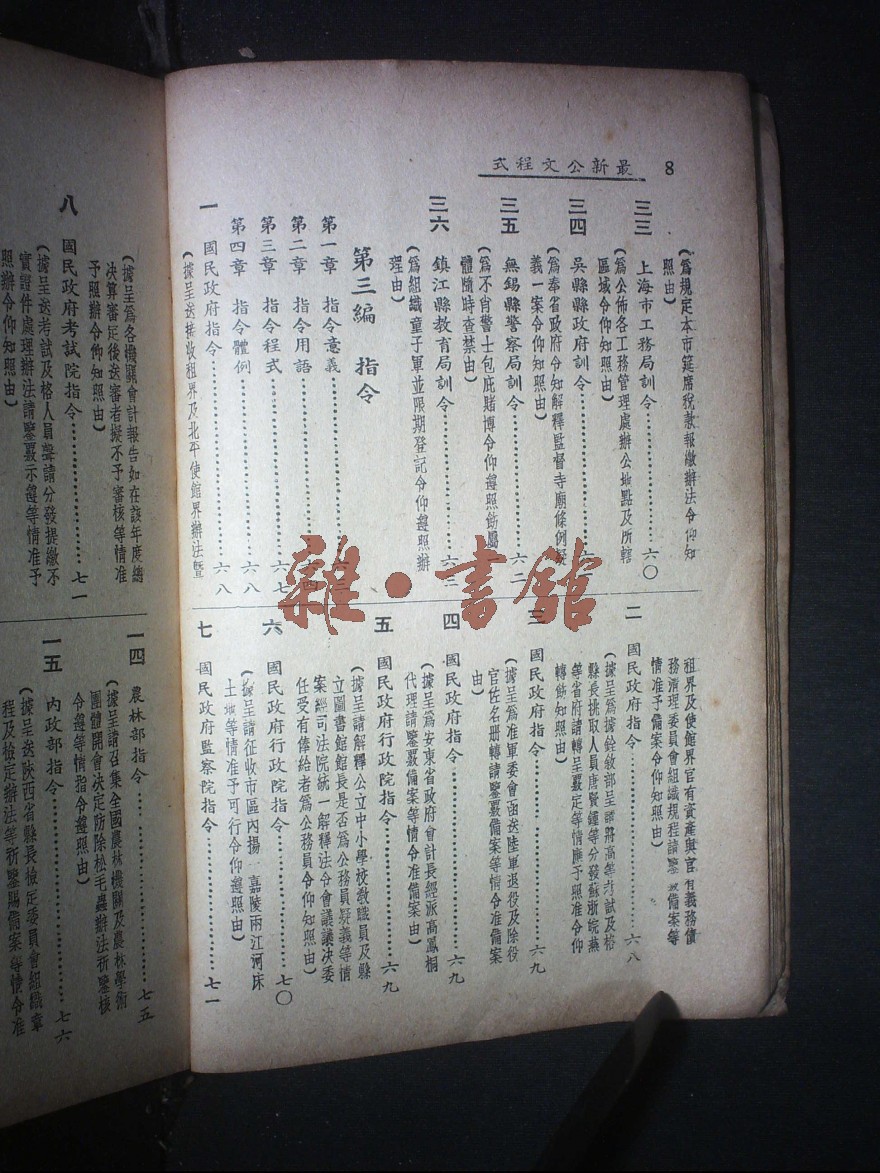 8
最新公文程式
（爲規定本市筵席稅款報繳辦法令仰知
照由）
三三 上海市工務局訓令 六〇
（爲公佈各工務管理處辦公地點及所轄
區域令仰知照由）
三四 吳縣縣政府訓令
（爲奉省政府令知解釋監督寺廟條例疑
義一案令仰知照由）
三五 無錫縣警察局訓令 六二
（爲不肖警士包庇賭博令仰遵照飭屬
體隨時查禁由）
三六 鎮江縣教育局訓令 六三
（爲組織童子軍並限期登記令仰遵照辦
理由）
第三編 指令
第一章 指令意義
第二章 指令用語
第三章 指令程式 六七
第四章 指令體例 六八
一 國民政府指令 六八
（據呈送接收租界及北平使館界辦法暨
租界及使館界官有資產與官有義務債
務清理委員會組織規程請鑒核備案等
情准予備案令仰知照由）
二 國民政府指令 六八
（據呈爲據銓敘部呈請將高等考試及格
縣長挑取人員唐賢鑣等分發蘇浙皖燕
等省府請轉呈覈定等情應予照准令仰
轉飭知照由）
三 國民政府指令 六九
（據呈爲准軍委會函送陸軍退役及除役
官佐名册轉請鑒覈備案等情令准備案
由）
四 國民政府指令 六九
（據呈爲安東省政府會計長經派高鳳桐
代理請鑒覈備案等情令准備案由）
五 國民政府行政院指令 六九
（據呈請解釋公立中小學校教職員及縣
立圖書館館長是否爲公務員疑義等情
案經司法院統一解釋法令會議議決委
任受有俸給者爲公務員令仰知照由）
六 國民政府行政院指令 七〇
（據呈請征收市區內揚　嘉陵兩江河床
土地等情准予可行令仰遵照由）
七 國民政府監察院指令 七一
（據呈爲各機關會計報告如在該年度總
決算審定後送審者擬不予審核等情准
予照辦令仰知照由）
八 國民政府考試院指令 七一
（據呈送考試及格人員聲請分發提繳不
實證件處理辦法請鑒覈示遵等情准予
照辦令仰知照由）
一四 農林部指令 七五
（據呈請召集全國農林機關及農林學術
團體開會決定防除松毛蟲辦法祈鑒核
令遵等情指令遵照由）
一五 內政部指令 七六
（據呈送陝西省縣長檢定委員會組織章
程及檢定辦法等祈鑒賜備案等情令准
雜·書館